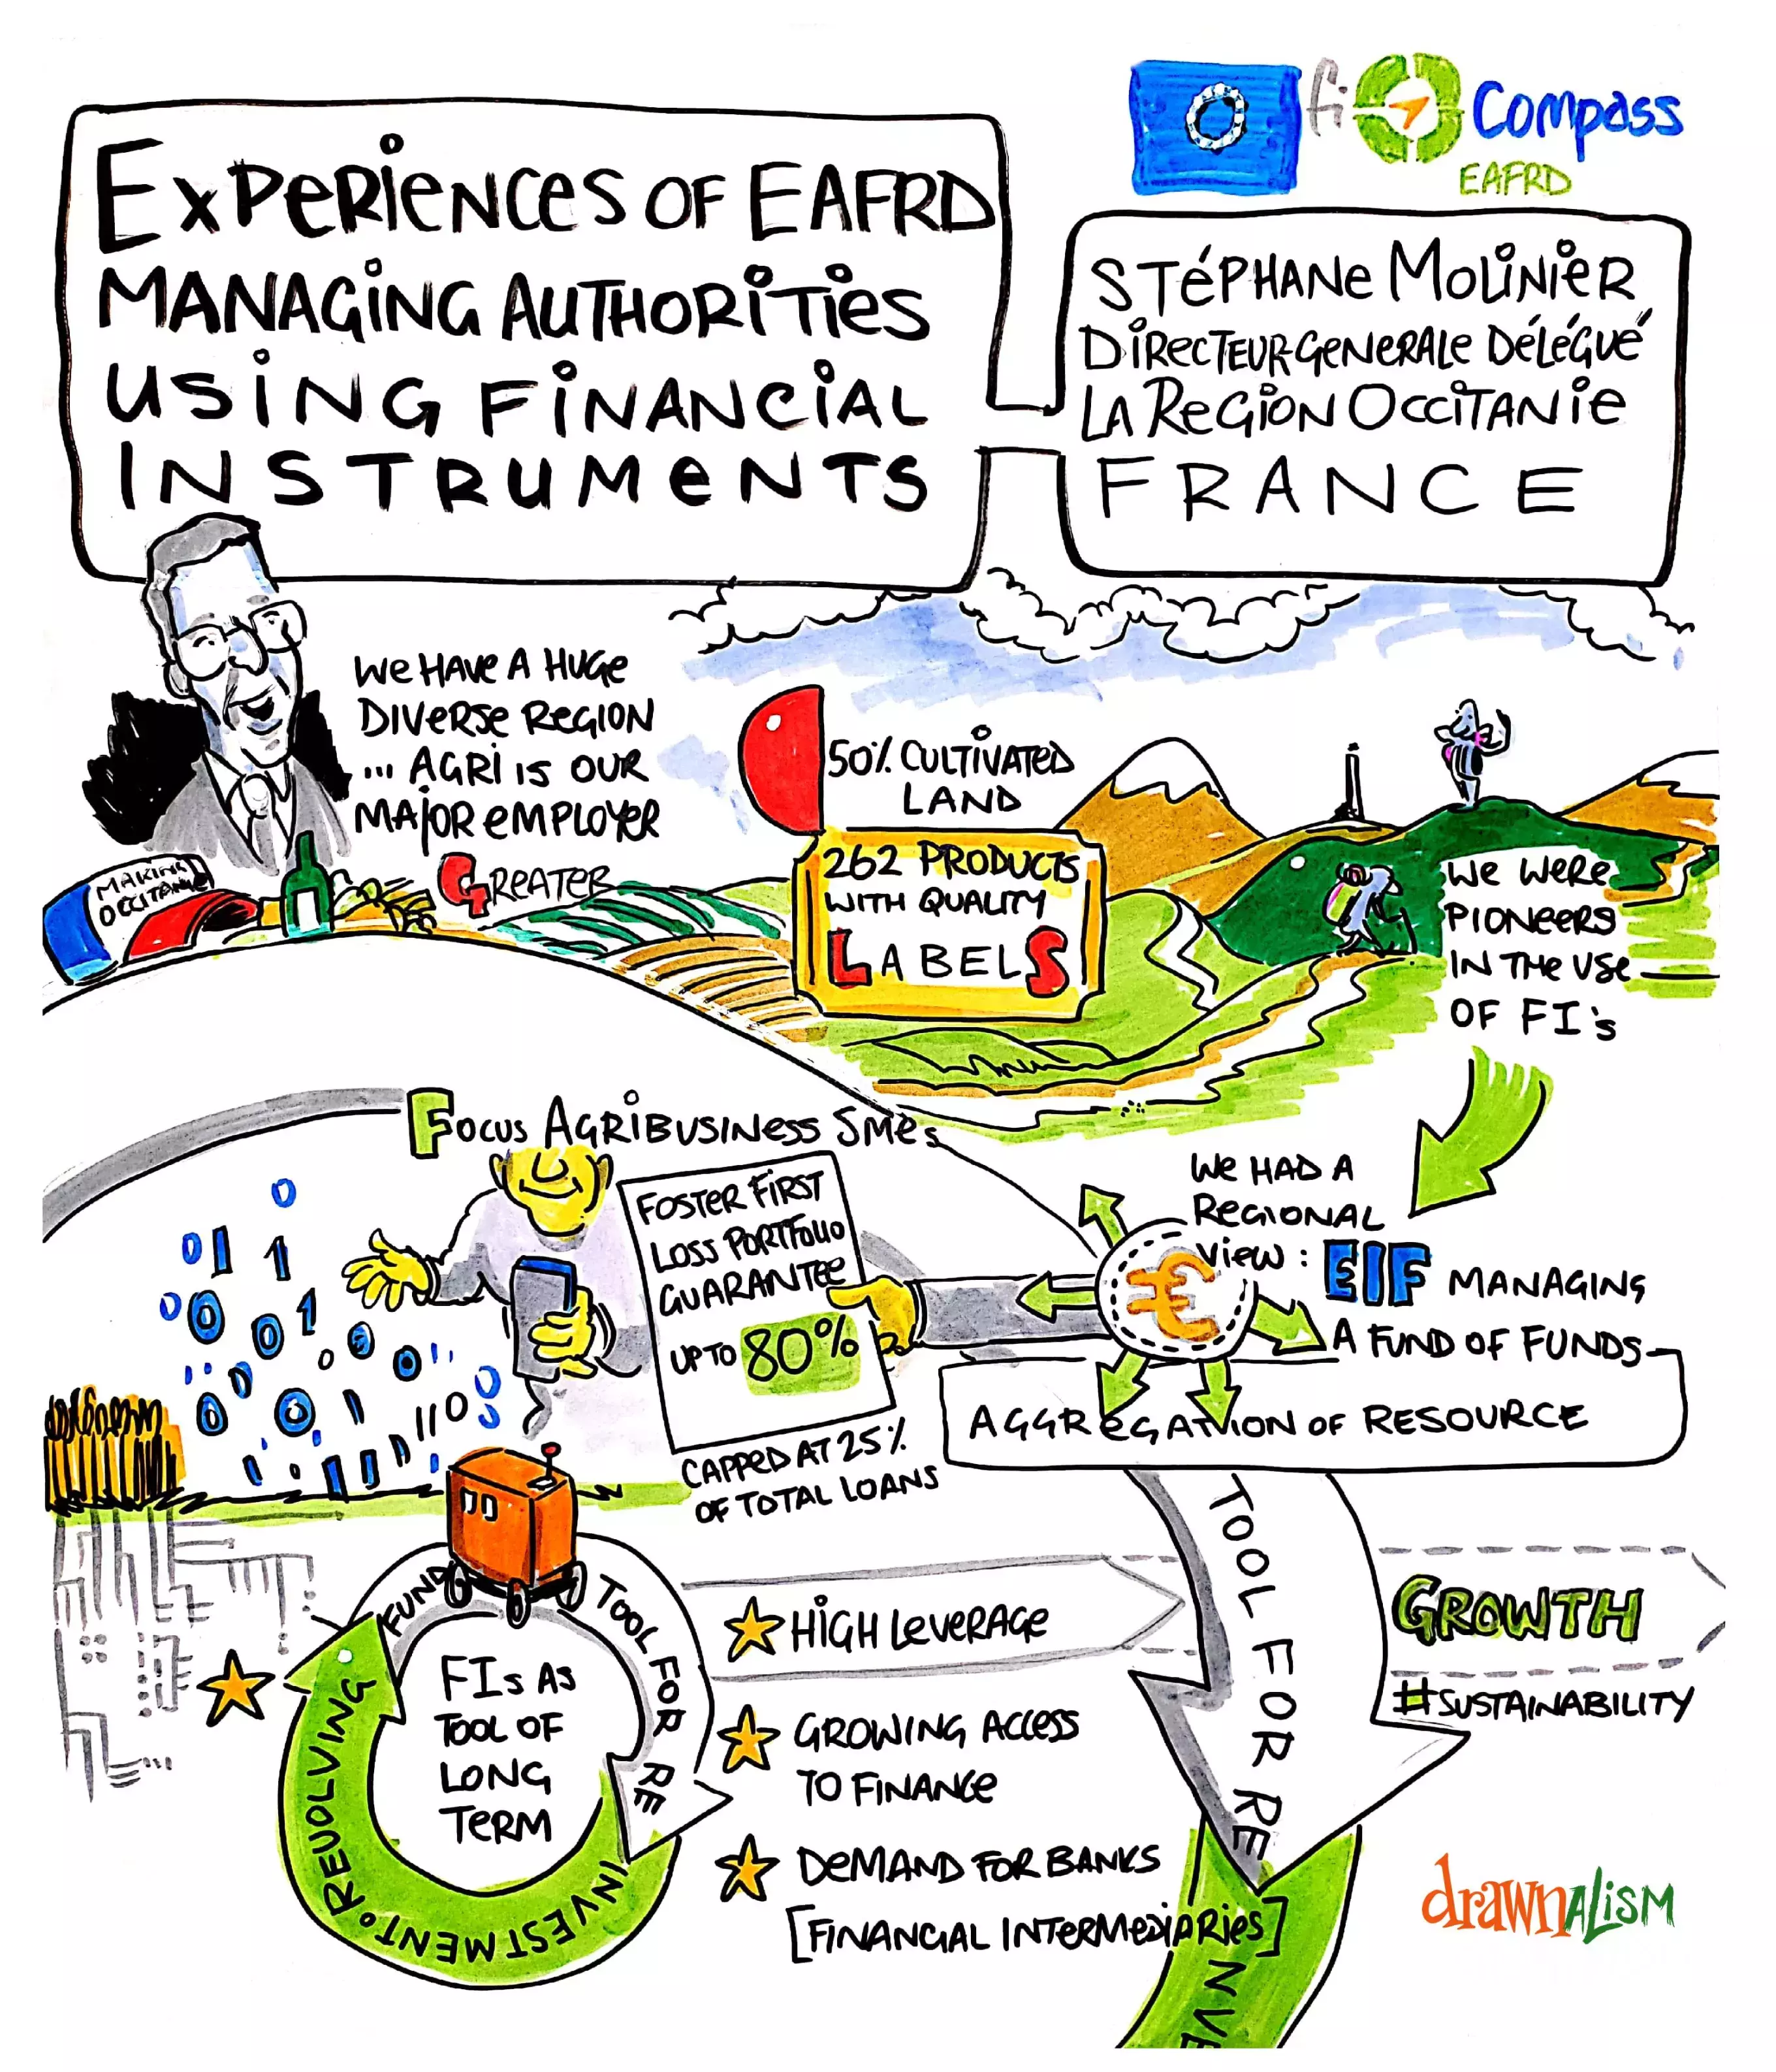 fi Compass
EAFRD
EXPERIENCES OF EAFRD
MANAGING AUTHORITIES
USING FINANCIAL
INSTRUMENTS
STÉPHANE MOLINIER
DIRECTEUR-GENERALE DÉLÉGUÉ
LA REGION OCCITANIE
FRANCE
WE HAVE A HUGE
DIVERSE REGION
... AGRI IS OUR
MAJOR EMPLOYER
MAKING
OCCITANIE
GREATER
50% CULTIVATED
LAND
262 PRODUCTS
WITH QUALITY
LABELS
WE WERE
PIONEERS
IN THE USE
OF FI's
FOCUS AGRIBUSINESS SMEs
FOSTER FIRST
LOSS PORTFOLIO
GUARANTEE
UP TO 80%
CAPPED AT 25%
OF TOTAL LOANS
WE HAD A
REGIONAL
VIEW: EIF MANAGING
A FUND OF FUNDS
€
AGGREGATION OF RESOURCE
FUND
TOOL FOR RE
INVESTMENT.
REVOLVING
FIs AS
TOOL OF
LONG
TERM
HIGH LEVERAGE
GROWING ACCESS
TO FINANCE
DEMAND FOR BANKS
[FINANCIAL INTERMEDIARIES]
TOOL FOR RE
INVE
GROWTH
#SUSTAINABILITY
drawnALISM